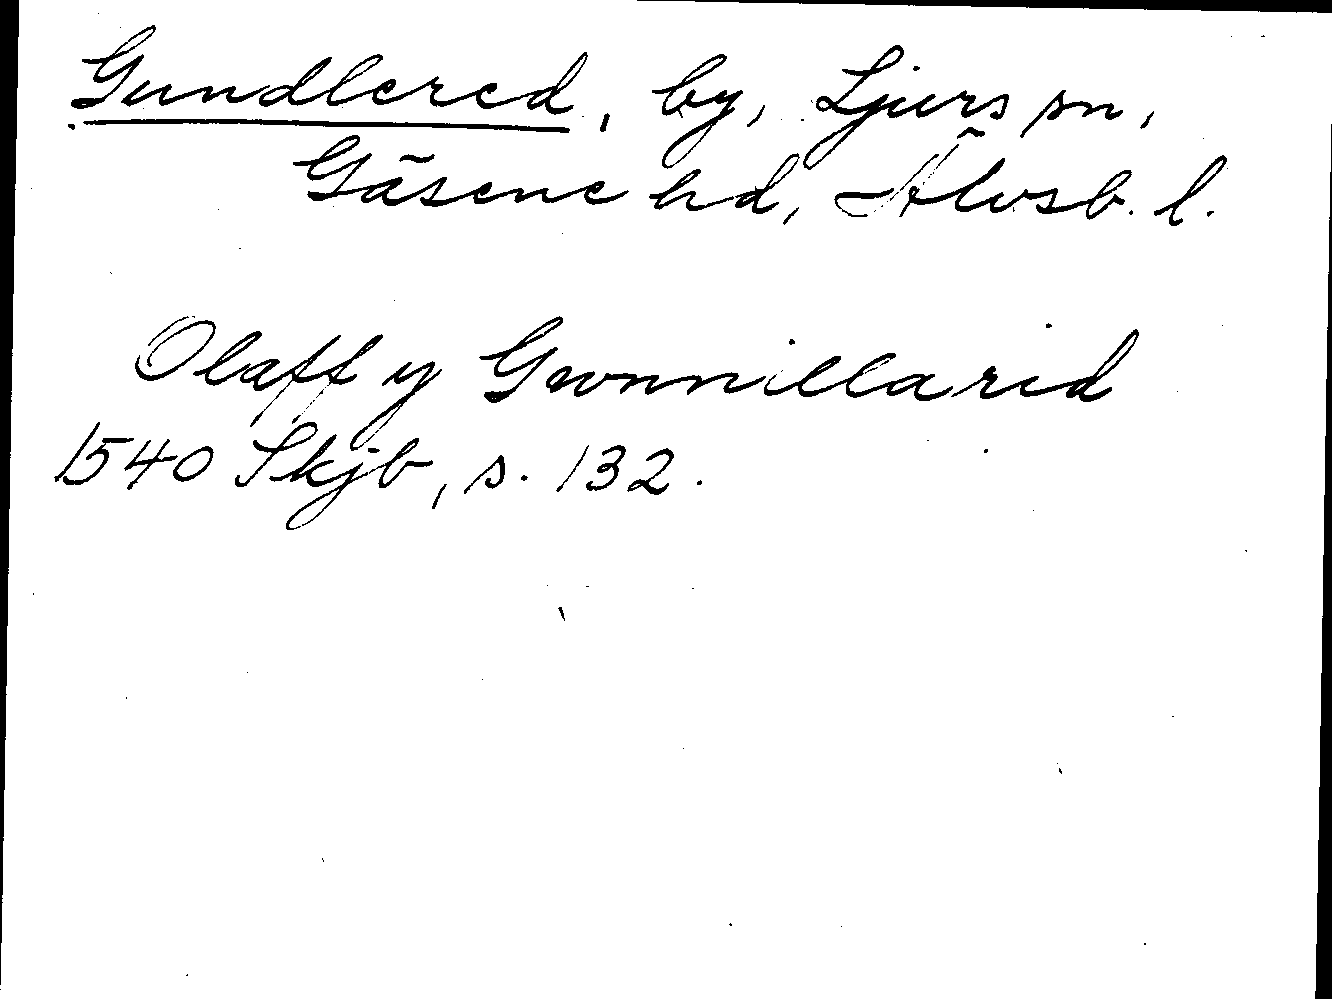 Gundlered, by, Ljurs sn,
Gäsene hd, Älvsb. l.
Olaff y Gwnnillarid
1540 Skjb, s. 132.